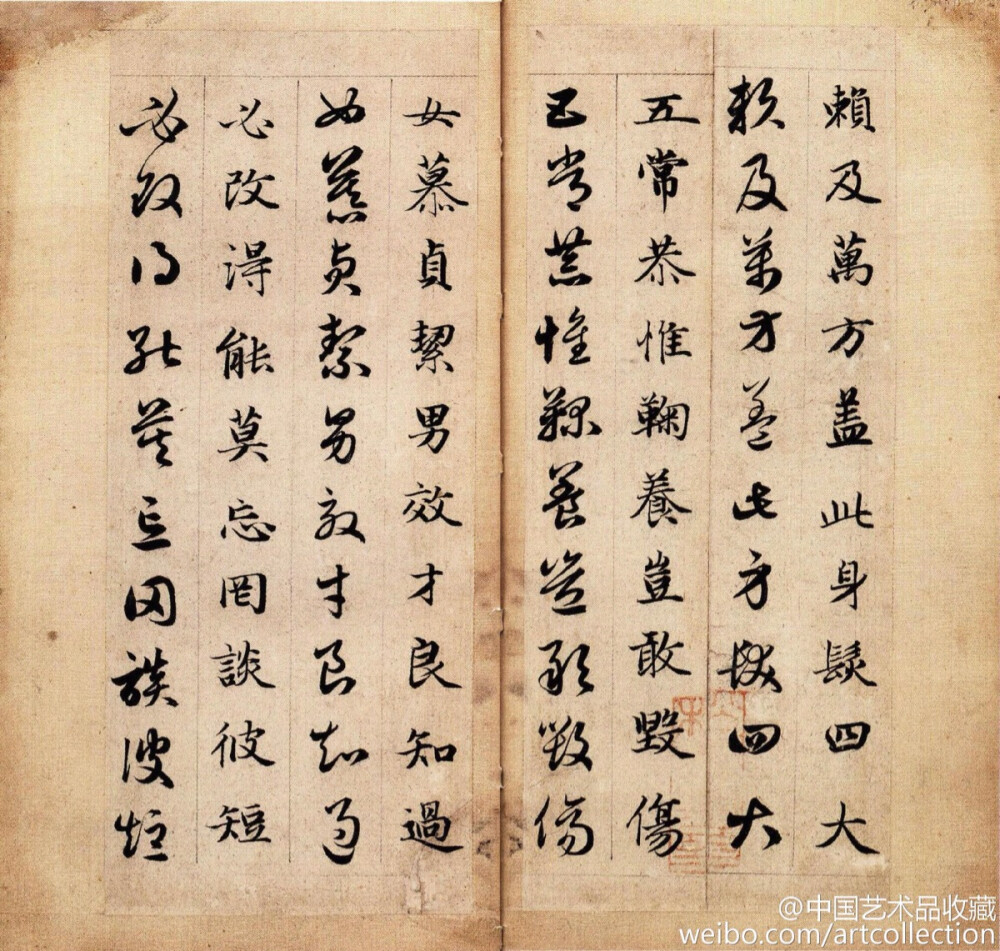 賴及萬方盖此身髮四大
賴及萬方盖此身髮四大
五常恭惟鞠養豈敢毀傷
五常恭惟鞠養豈敢毀傷
女慕貞絜男效才良知過
女慕貞絜男效才良知過
必改得能莫忘罔談彼短
必改得能莫忘罔談彼短
@中国艺术品收藏
weibo.com/artcollection